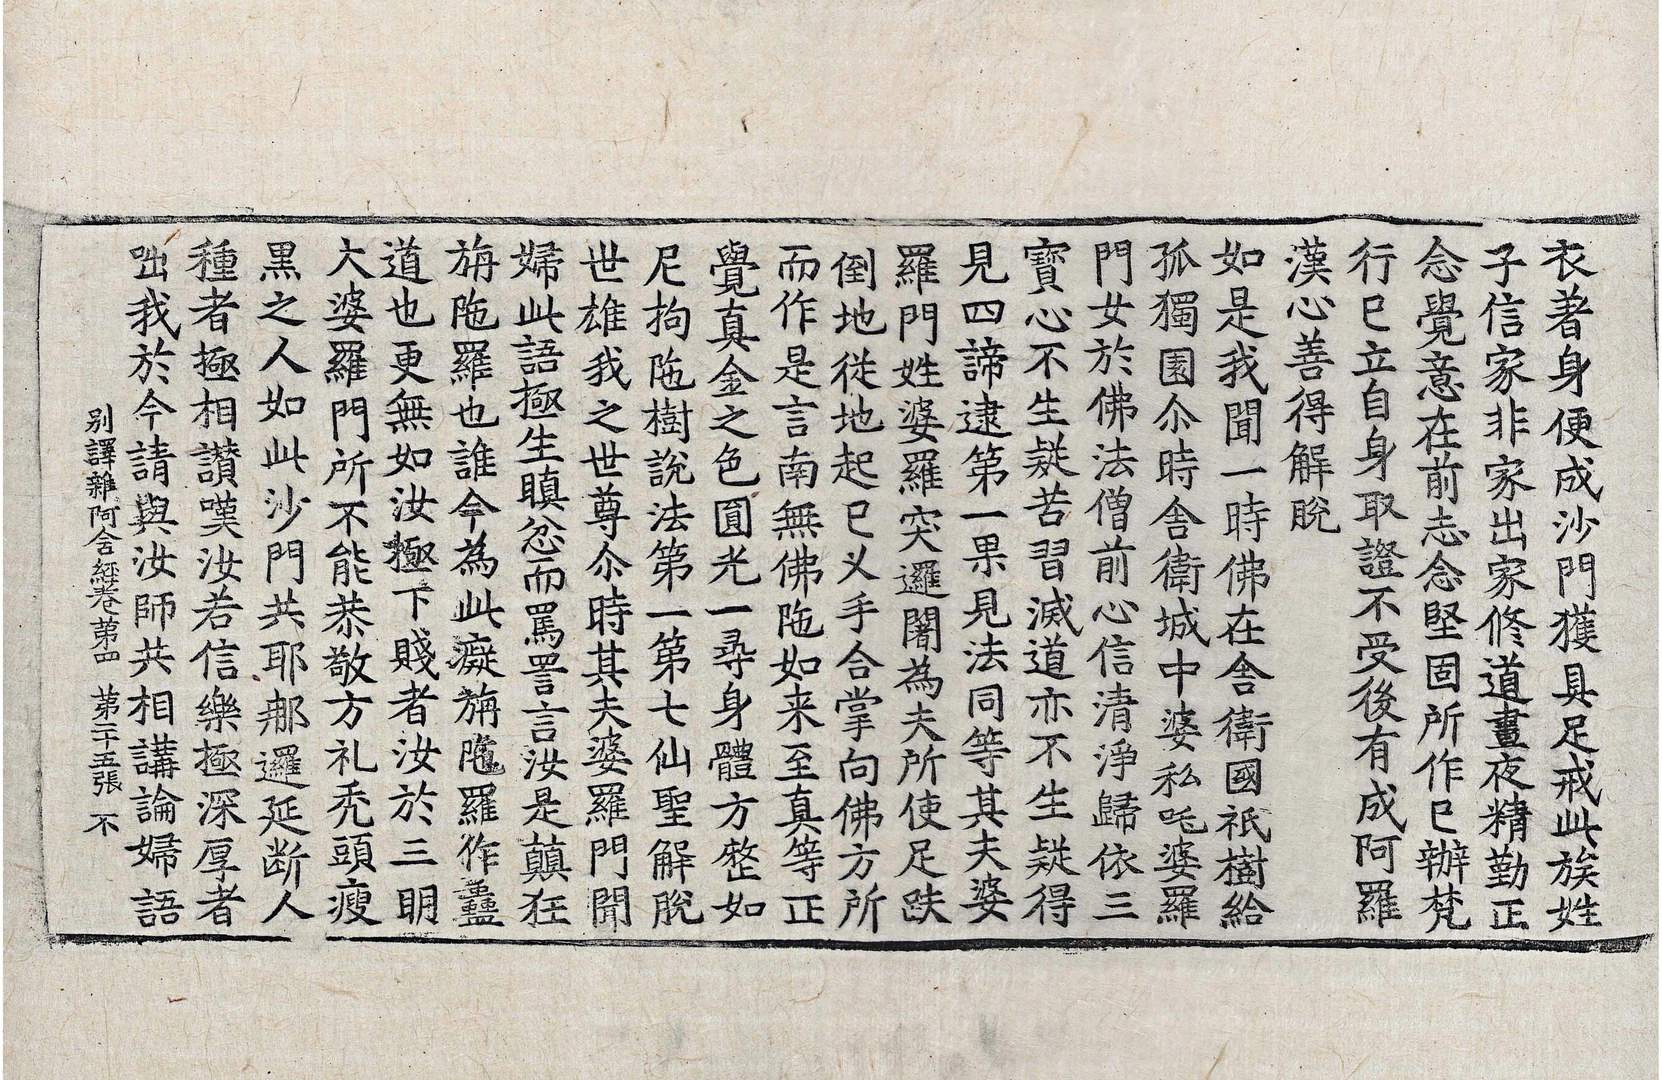 衣著身便成沙門獲具足戒此族姓
子信家非家出家修道晝夜精勤正
念覺意在前志念堅固所作已辦梵
行已立自身取證不受後有成阿羅
漢心善得解脫
如是我聞一時佛在舍衛國祇樹給
孤獨園尒時舍衛城中婆私吒婆羅
門女於佛法僧前心信清淨歸依三
寶心不生疑苦習滅道亦不生疑得
見四諦逮第一果見法同等其夫婆
羅門姓婆羅突邏闍為夫所使足跌
倒地從地起已叉手合掌向佛方所
而作是言南無佛陁如来至真等正
覺真金之色圓光一尋身體方整如
尼拘陁樹說法第一第七仙聖解脫
世雄我之世尊尒時其夫婆羅門聞
婦此語極生瞋忿而罵詈言汝是顛狂
旃陁羅也誰今為此癡旃陁羅作蠱
道也更無如汝極下賤者汝於三明
大婆羅門所不能恭敬方礼禿頭瘦
黑之人如此沙門共耶那邏延断人
種者極相讃嘆汝若信樂極深厚者
咄我於今請與汝師共相講論婦語
别譯雜阿含經卷苐四 苐二十五張 不